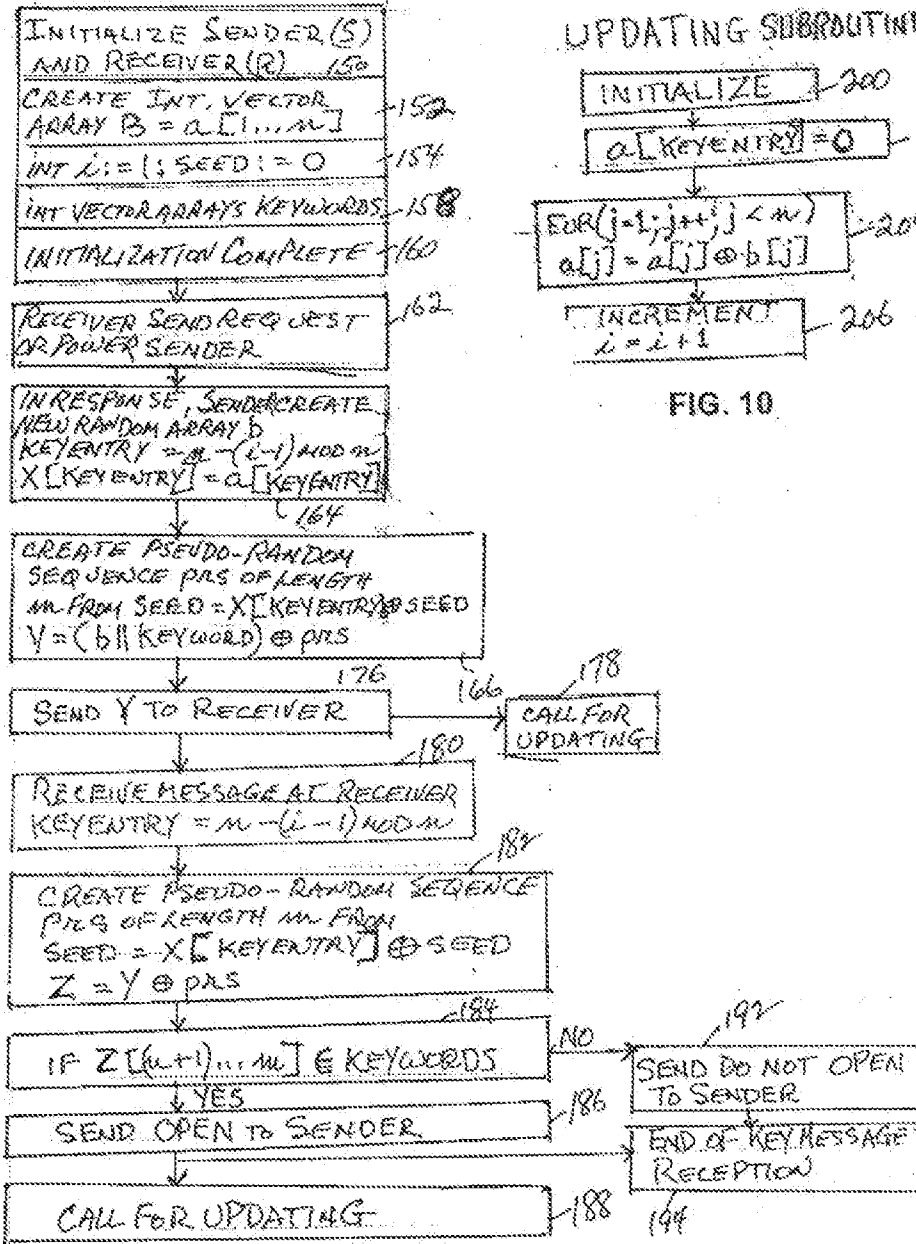 INITIALIZE SENDER (S)
AND RECEIVER (R) 150
CREATE INT. VECTOR
ARRAY B = a[1...n]
152
INT i:=1; SEED:=0
154
INT VECTOR ARRAYS KEYWORDS
158
INITIALIZATION COMPLETE
160
RECEIVER SEND REQUEST
OR POWER SENDER
162
IN RESPONSE, SENDER CREATE
NEW RANDOM ARRAY b
KEYENTRY = n-(i-1) MOD n
X[KEYENTRY] = a[KEYENTRY]
164
CREATE PSEUDO-RANDOM
SEQUENCE prs OF LENGTH
m FROM SEED = X[KEYENTRY]⊕SEED
Y = (b || KEYWORD) ⊕ prs
166
176
SEND Y TO RECEIVER
178
CALL FOR
UPDATING
180
RECEIVE MESSAGE AT RECEIVER
KEYENTRY = n-(i-1) MOD n
182
CREATE PSEUDO-RANDOM SEQENCE
prs OF LENGTH m FROM
SEED = X[KEYENTRY] ⊕ SEED
Z = Y ⊕ prs
184
IF Z[(n+1)...m] ∈ KEYWORDS
NO
192
SEND DO NOT OPEN
TO SENDER
YES
186
SEND OPEN TO SENDER
END OF KEY MESSAGE
RECEPTION
194
CALL FOR UPDATING
188
UPDATING SUBROUTIN
INITIALIZE
200
a[KEYENTRY]=0
FOR(j=1; j++; j<n)
a[j] = a[j] ⊕ b[j]
INCREMENT
i = i+1
206
FIG. 10